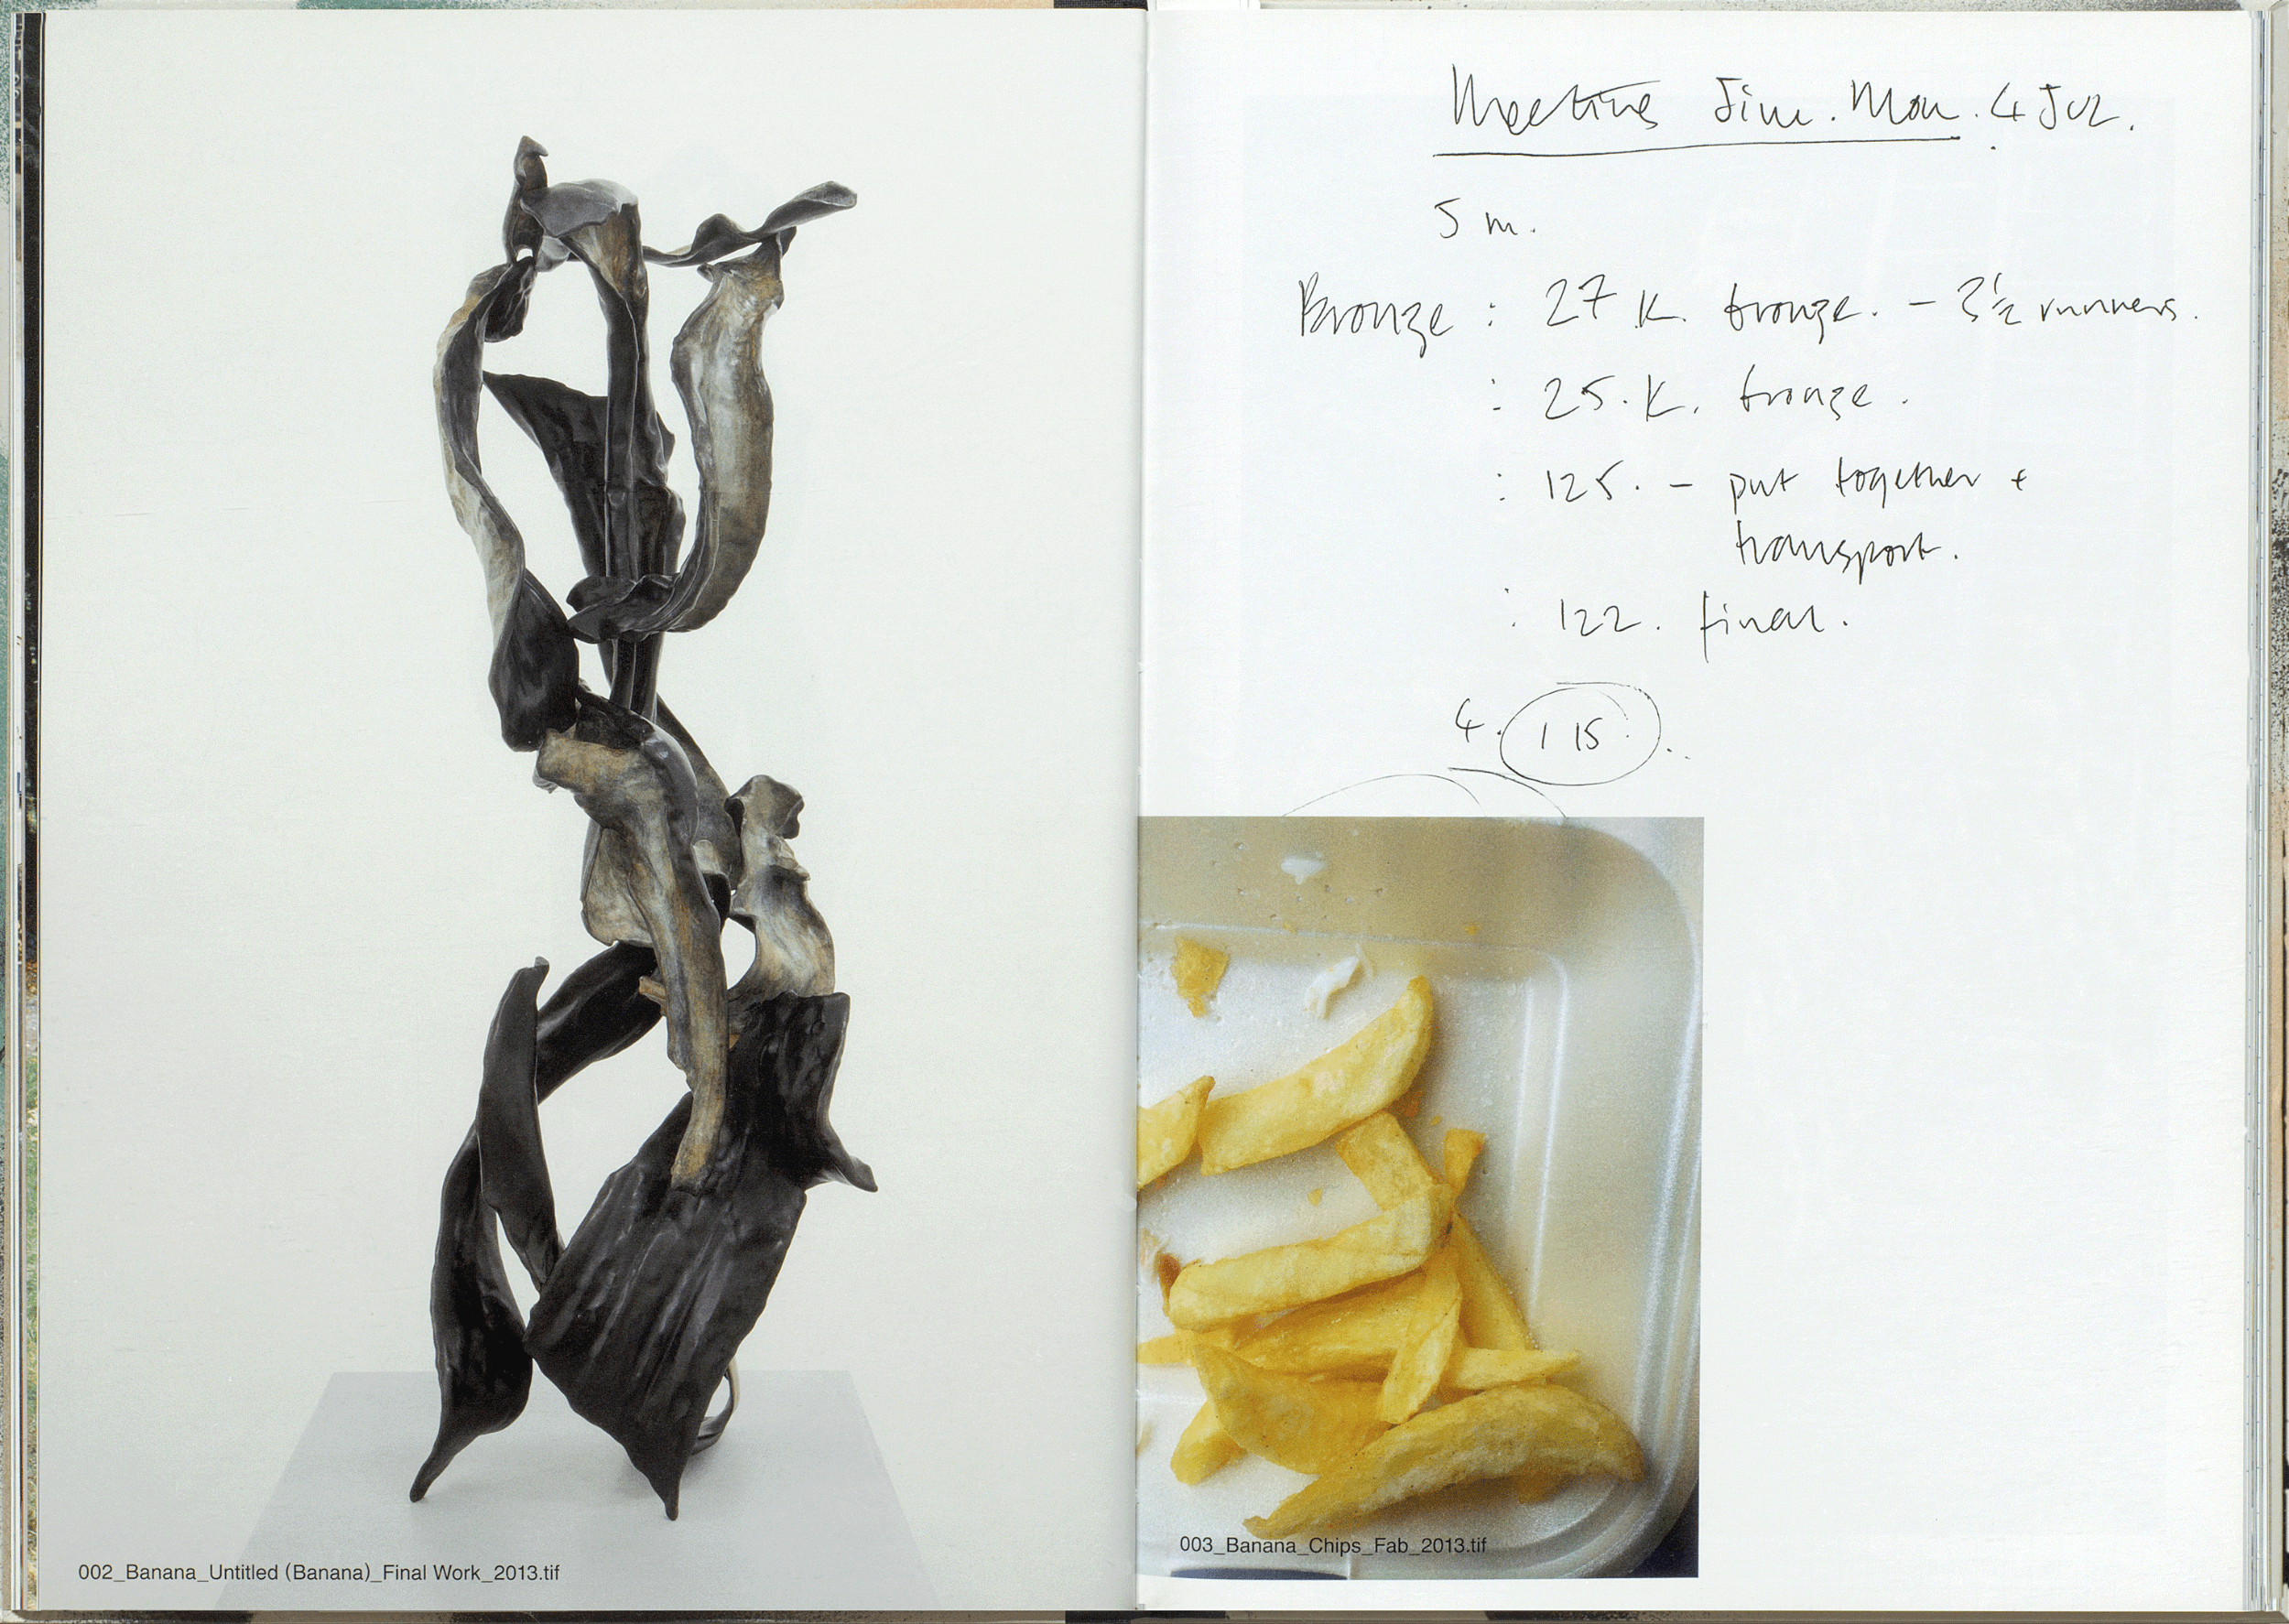 002_Banana_Untitled (Banana)_Final Work_2013.tif
Meeting Jim. Mon. 4 Jul.
5 m.
Bronze : 27 K. bronze. – 3½ runners.
: 25. K. bronze.
: 125. – put together +
transport.
: 122. final.
4. 115.
003_Banana_Chips_Fab_2013.tif